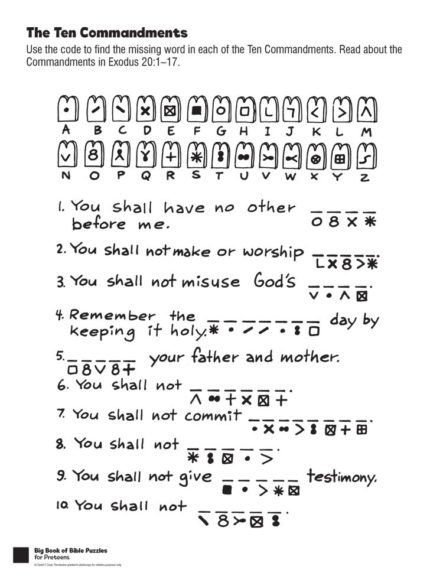 The Ten Commandments
Use the code to find the missing word in each of the Ten Commandments. Read about the
Commandments in Exodus 20:1–17.
A B C D E F G H I J K L M
N O P Q R S T U V W X Y Z
1. You shall have no other _ _ _ _
before me.
2. You shall not make or worship _ _ _ _ _.
3. You shall not misuse God's _ _ _ _.
4. Remember the _ _ _ _ _ _ _ day by
keeping it holy.
5. _ _ _ _ _ your father and mother.
6. You shall not _ _ _ _ _ _.
7. You shall not commit _ _ _ _ _ _ _ _.
8. You shall not _ _ _ _ _.
9. You shall not give _ _ _ _ _ testimony.
10. You shall not _ _ _ _ _.
Big Book of Bible Puzzles
for Preteens